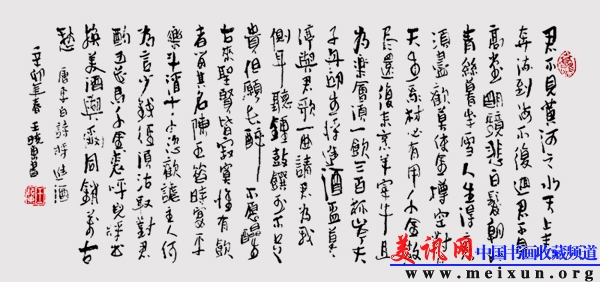 君不見黃河之水天上來
奔流到海不復迴君不見
高堂明鏡悲白髮朝如
青絲暮成雪人生得意
須盡歡莫使金樽空對月
天生吾材必有用千金散
盡還復來烹羊宰牛且
為樂會須一飲三百杯岑夫
子丹丘生將進酒盃莫
停與君歌一曲請君為我
側耳聽鐘鼓饌玉不足
貴但願長醉不願醒
古來聖賢皆寂寞惟有飲
者留其名陳王昔時宴平
樂斗酒十千恣歡謔主人何
為言少錢徑須沽取對君
酌五花馬千金裘呼兒將出
換美酒與爾同銷萬古
愁 唐李白詩將進酒
辛卯年春王曉
美讯网 中国书画收藏频道
www.meixun.org